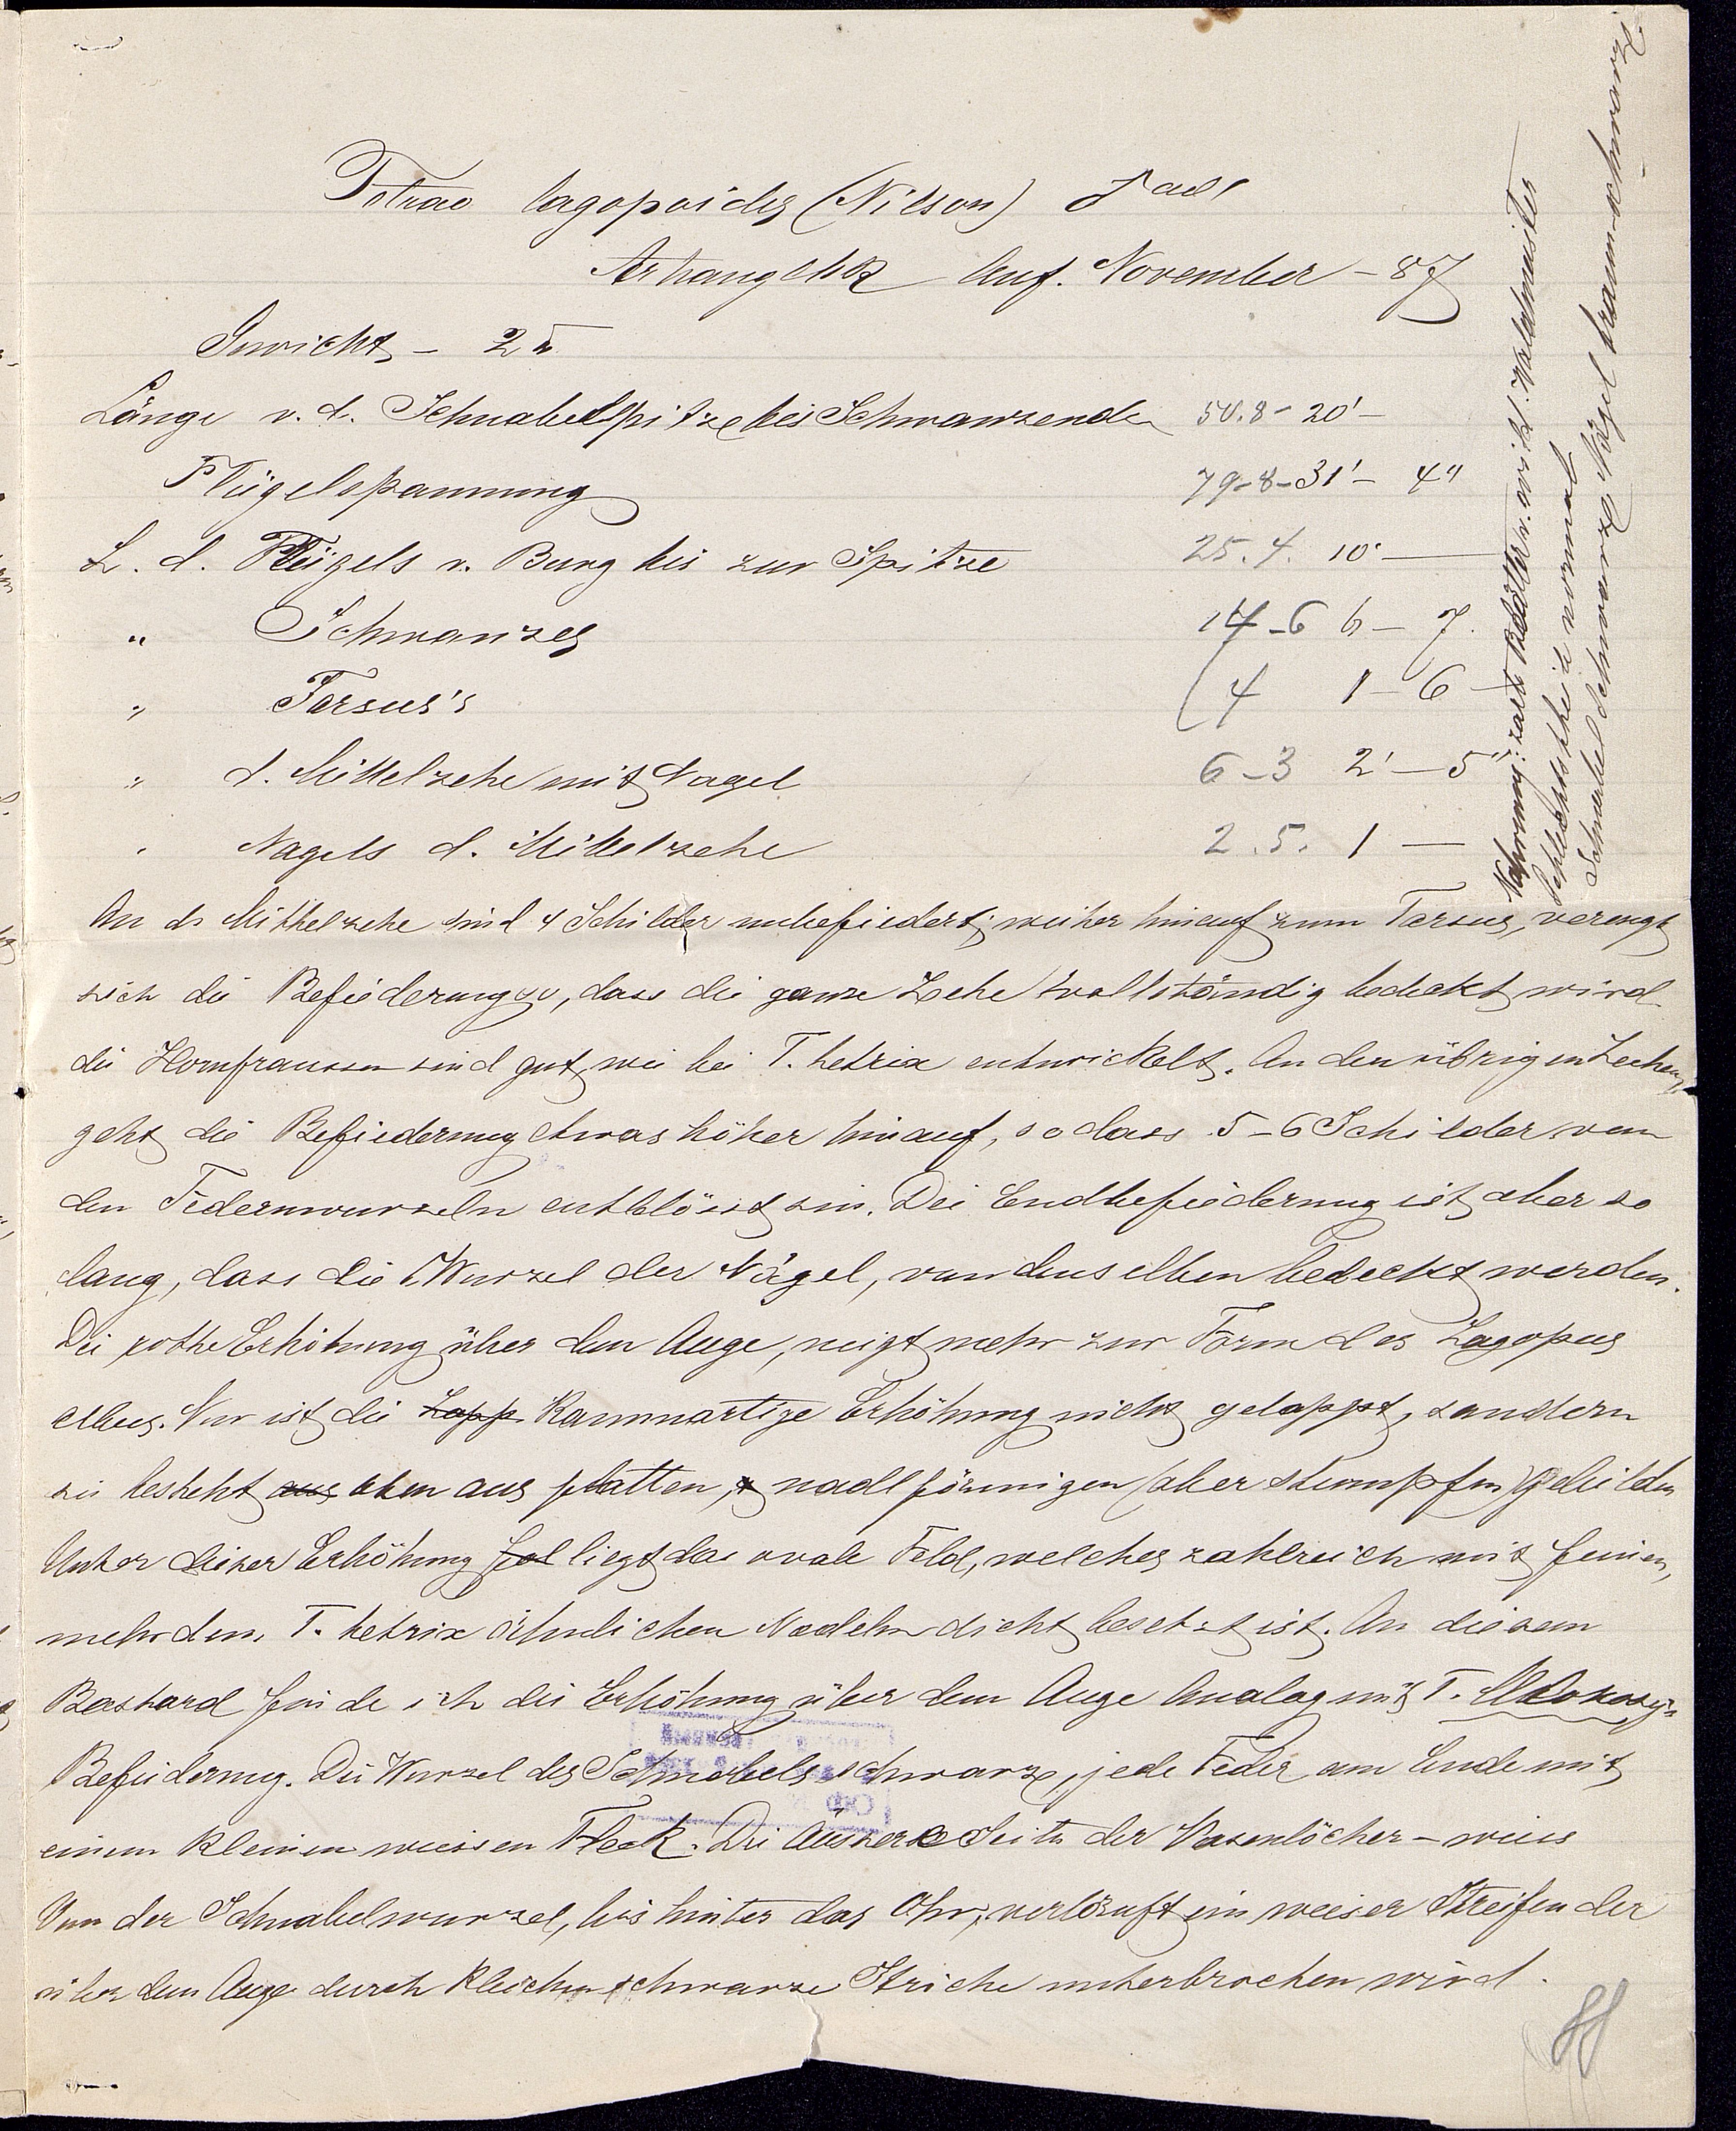 Tetrao lagopoides (Nilson) ♂ ad
Arhangelsk Anf. November - 87
Gewicht - 2 ℔
Länge v. d. Schnabelspitze bis Schwanzende 50.8 - 20' -
Flügelspannung 79-8-31' - 4"
L. d. Flügels v. Bug bis zur Spitze 25.4. 10' —
" Schwanzes 14-6 6 - 7.
" Tarsus's (4 1-6 -
" d. Mittelzehe mit Nagel 6-3 2' - 5"
" Nagels d. Mittelzehe 2.5. 1 —
Nahrung: zarte Blätter v. wild. Waldmeister
Schlechtstheile normal
Schnabel schwarz Nägel braun-schwarz
An dr Mittelzehe sind 4 Schilder unbefiedert; weiter hinauf zum Tarsus, verengt
sich die Befiederung so, dass die ganze Zehe vollständig bedekt wird
die Hornfranssen sind gut, wie bei T. tetrix entwickelt. An den übrigen Zechen,
geht die Befiederung etwas höher hinauf, so dass 5-6 Schilder von
den Federnwurzeln entblösst sin. Die Endbefiederung ist aber so
lang, dass die Wurzel der Nägel, von denselben bedeckt werden.
Die rothe Erhöhung über dem Auge, neigt mehr zur Form des Lagopus
albus. Nur ist die Lapp Kammartige Erhöhung nicht gelappt, sondern
sie besteht aus oben aus platten, nadlförmigen (aber stumpfen) Gebilden
Unter dieser Erhöhung fol liegt das ovale Feld, welches zahlreich mit feinen,
mehr dem T. tetrix ähnlichen Nadeln dicht besetzt ist. An diesem
Bastard finde ich die Erhöhung über dem Auge Analog mit T. Mlokosi-
Befiederung. Die Wurzel des Schnabels schwarz, jede Feder am Ende mit
einem kleinen weissen Fleck. Die Äussere Seite der Nasenlöcher - weiss
Von der Schnabelwurzel, bis hinter das Ohr, verläuft ein weiser Streifen der
über dem Auge durch kleichen schwarze Striche unterbrochen wird.